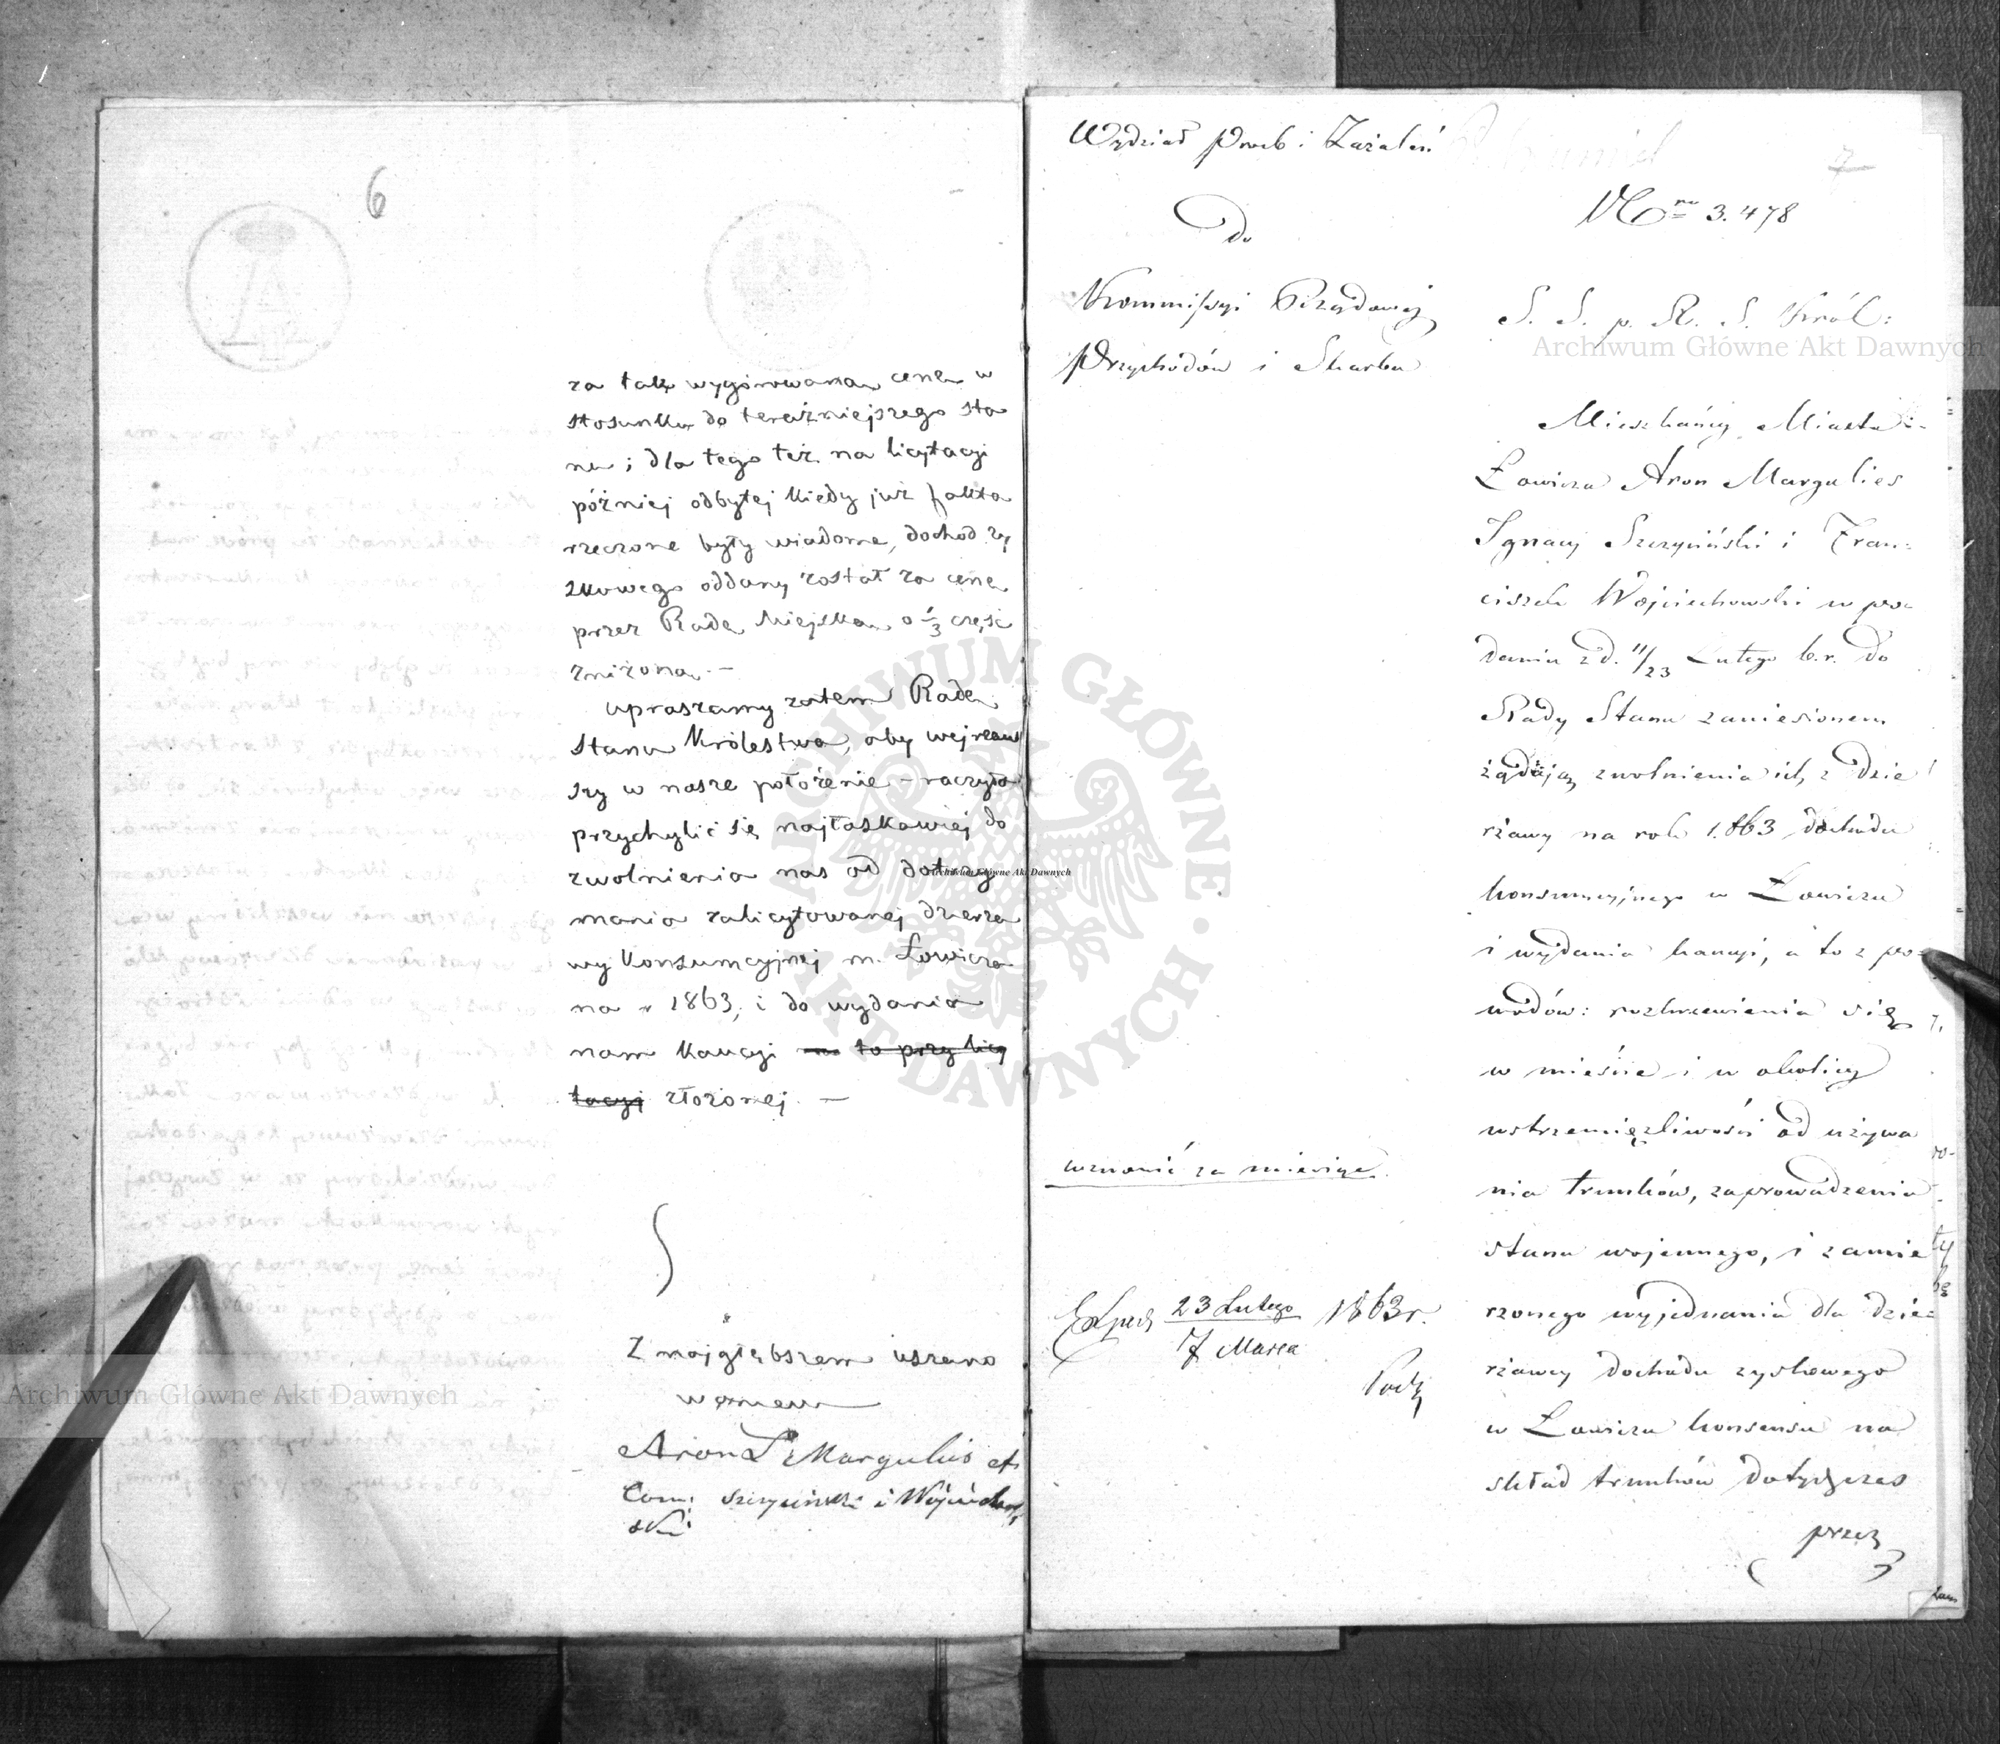 6
za tak wygórowaną cenę w
stosunku do teraźniejszego sta
nu; dla tego też na licytacyi
później odbytej kiedy już fakta
rzeczone były wiadome, dochod zy
skowego oddany został za cenę
przez Radę Miejską o 1/3 część
zniżoną. —
Upraszamy zatem Radę
Stanu Królestwa, aby wejrzaw
szy w nasze położenie — raczyła
przychylić się najłaskawiej do
zwolnienia nas od dotrzy
mania zalicytowanej dzierża
wy Konsumcyjnej m. Łowicza
na r 1863, i do wydania
nam Kaucyi to przy licy
tacyi złożonej. —
Z najgłębszem uszano
waniem
Aron Margulies et
Com: Szczyciński i Wojciechow
ski
Wydział Prośb i Zażaleń
7
Nro 3.478
Do
Kommissyi Rządowej
Przychodów i Skarbu
S. S. p. R. S. Król:
Mieszkańcy Miasta
Łowicza Aron Margulies
Ignacy Szczyciński i Fran:
ciszek Wojciechowski w po=
daniu z d. 11/23 Lutego b.r. do
Rady Stanu zaniesionem
żądają zwolnienia ich z dzie
rżawy na rok 1863 dochodu
konsumcyjnego w Łowiczu
i wydania kaucyi, a to z po=
wodów: rozkrzewienia się
w mieście i w okolicy
wstrzemięźliwości od używa
nia trunków, zaprowadzenia
stanu wojennego, i zamie
rzonego wyjednania dla dzie=
rżawcy dochodu zyskowego
w Łowiczu konsensu na
skład trunków dotychczas
przez
wznowić za miesiąc.
Exped. 23 Lutego / 7 Marca 1863 r.
Archiwum Główne Akt Dawnych
Archiwum Główne Akt Dawnych
Archiwum Główne Akt Dawnych
ARCHIWUM GŁÓWNE AKT DAWNYCH